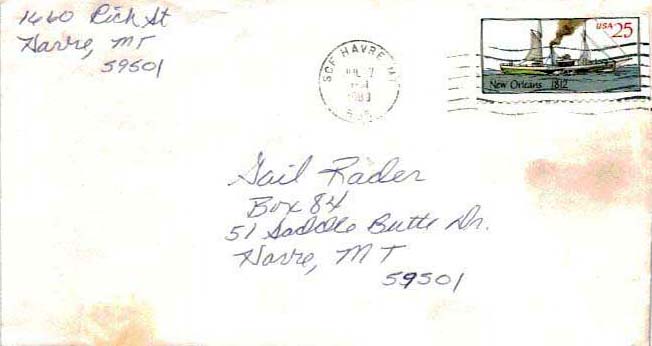 1660 Rich St
Havre, MT
59501
SCF HAVRE MT
JUL 7
PM
USA 25
New Orleans 1812
Gail Rader
Box 84
51 Saddle Butte Dr.
Havre, MT
59501